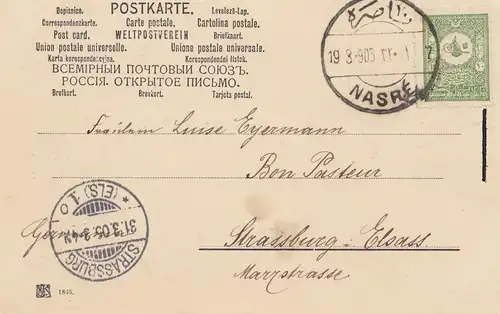 Dopisnice. POSTKARTE. Levelezö-Lap.
Correspondenzkarte. Carte postale. Cartolina postale.
Post card. WELTPOSTVEREIN Briefkaart.
Union postale universelle. Unione postale universale.
Karta korespondencyjna. Korespondenční lístek.
ВСЕМІРНЫЙ ПОЧТОВЫЙ СОЮЗЪ.
РОССІЯ. ОТКРЫТОЕ ПИСЬМО.
Brefkort. Brevkort. Tarjeta postal.
ناصره
19 3
NASRE
Fräulein Luise Eyermann
Bon Pasteur
Germania
Strassburg i. Elsass
Marzstrasse
STRASSBURG
31.3.05.3-4N
* (ELS) 1. 0
1845.